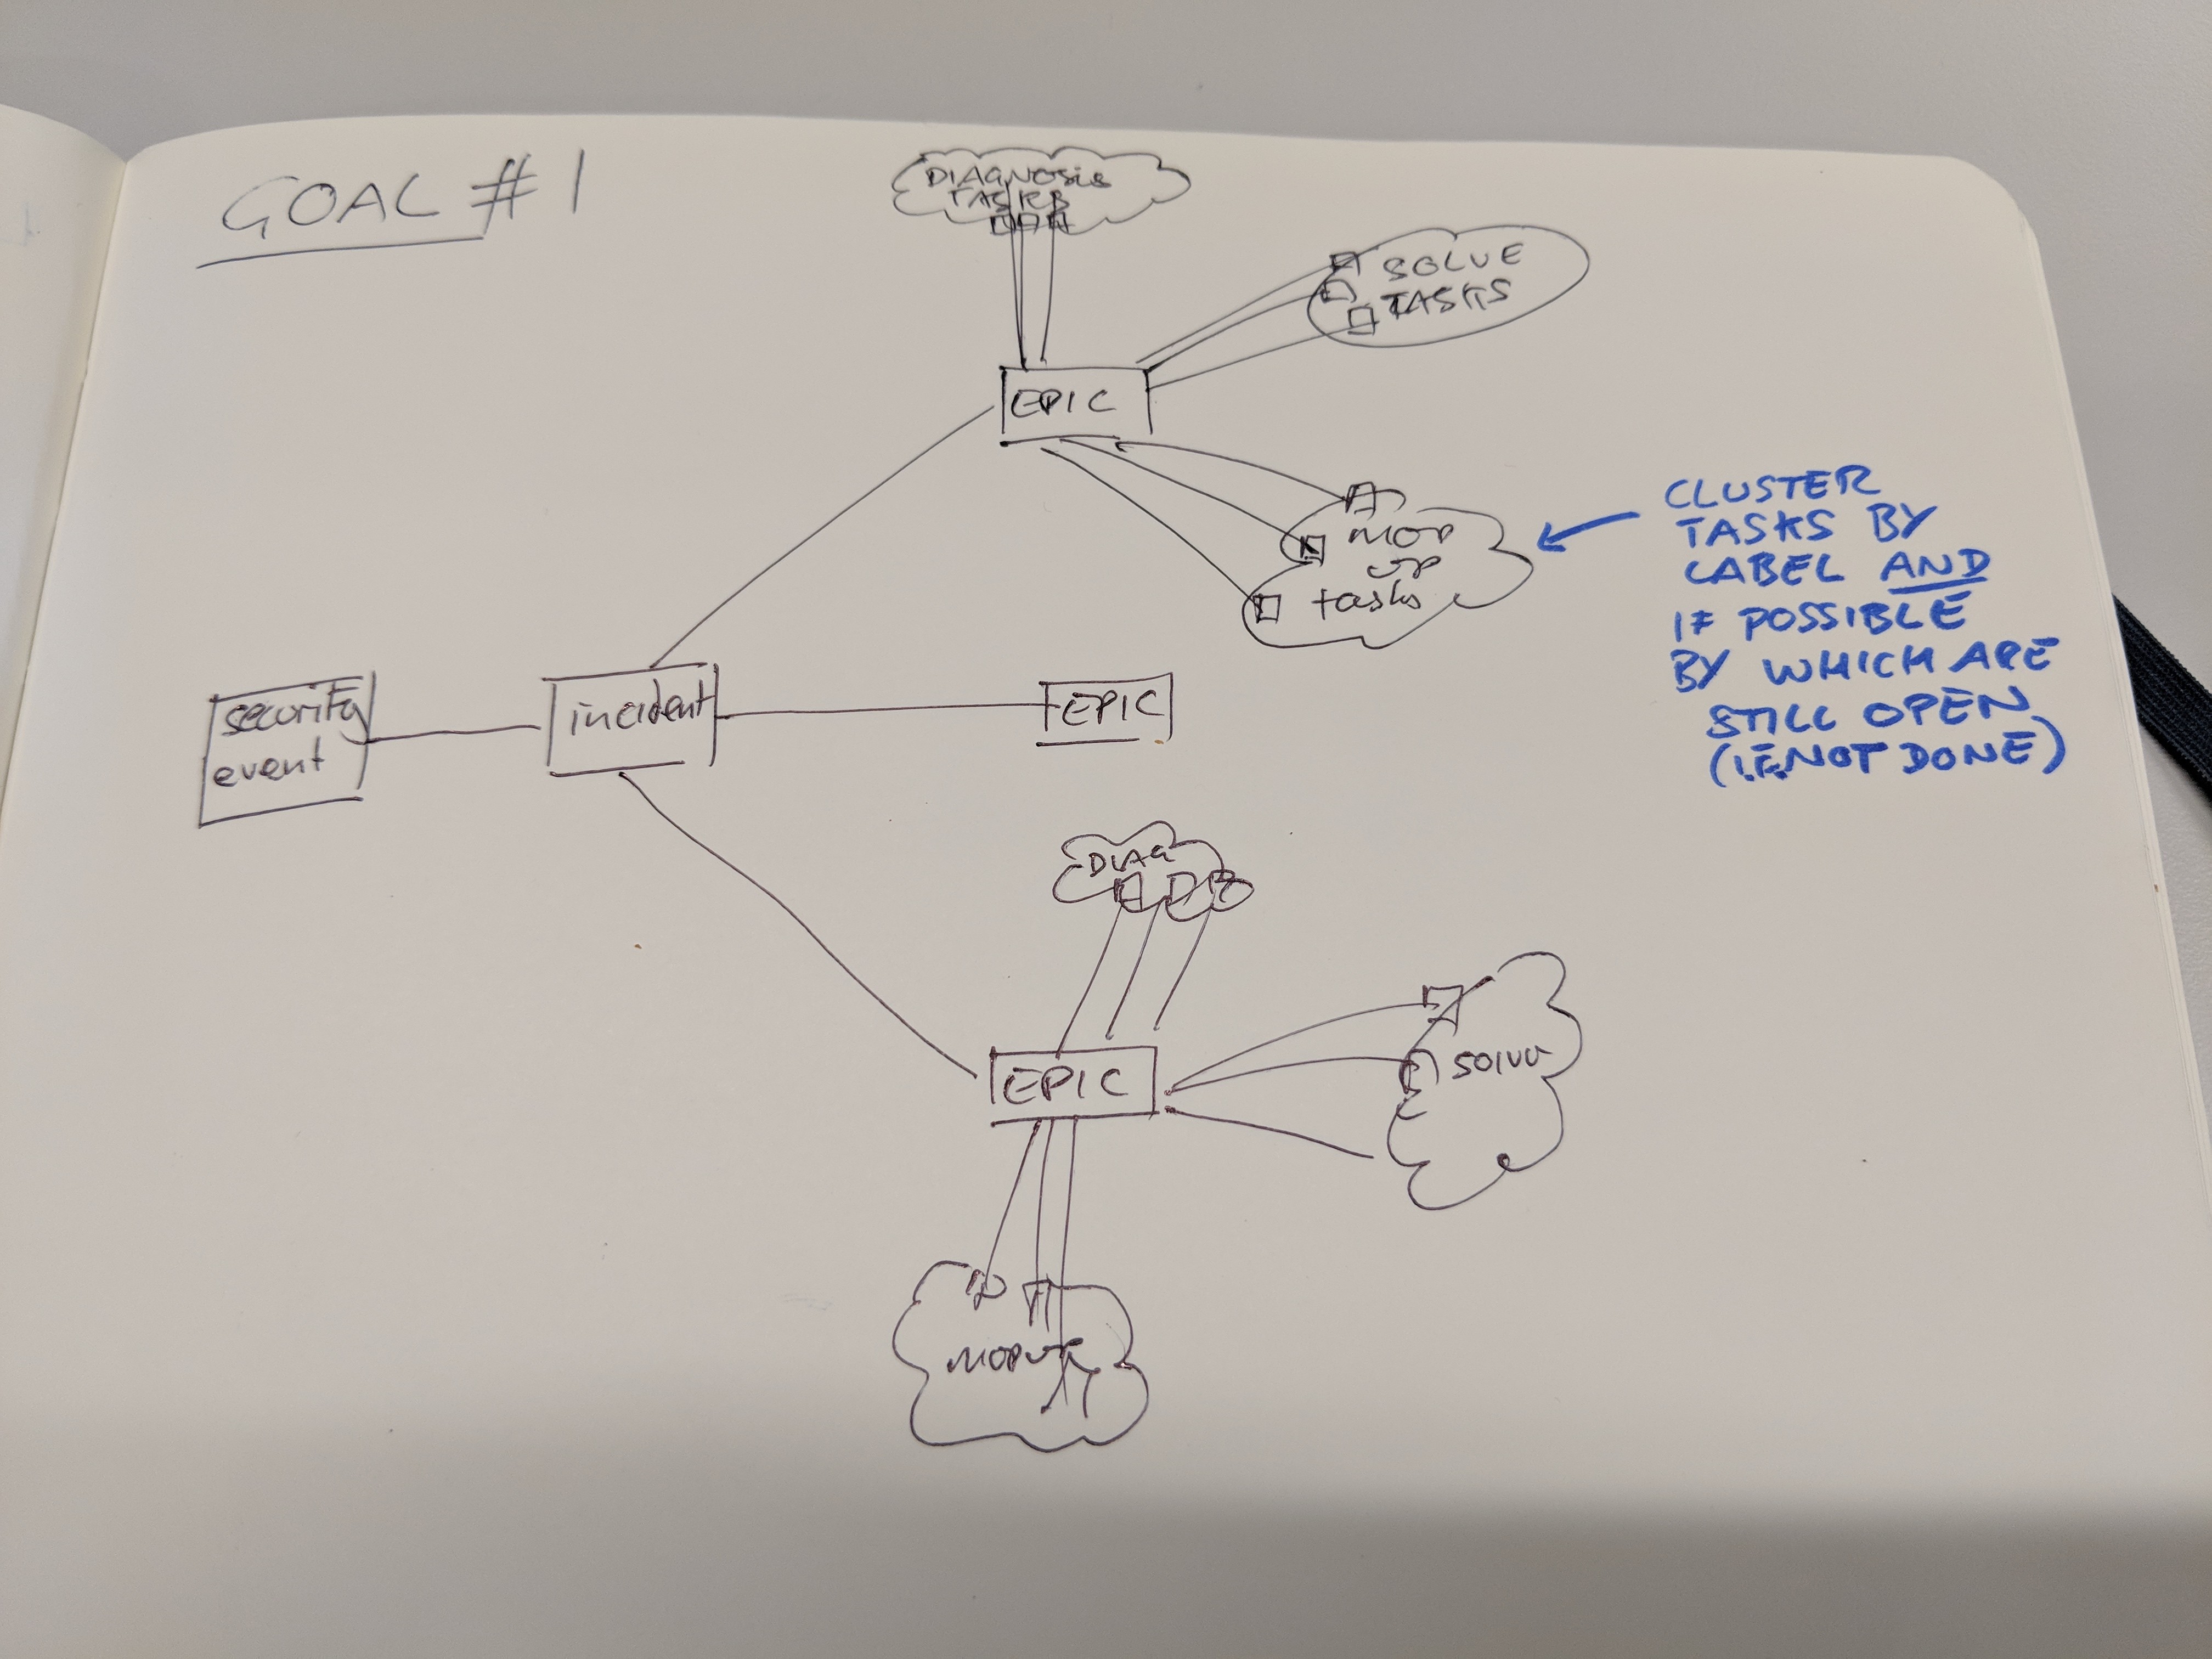 GOAL #1
DIAGNOSIS
TASKS
SOLVE
TASKS
EPIC
MOP
UP
tasks
CLUSTER
TASKS BY
LABEL AND
IF POSSIBLE
BY WHICH ARE
STILL OPEN
(I.E. NOT DONE)
security
event
incident
EPIC
DIAG
SOLVE
EPIC
MOP UP